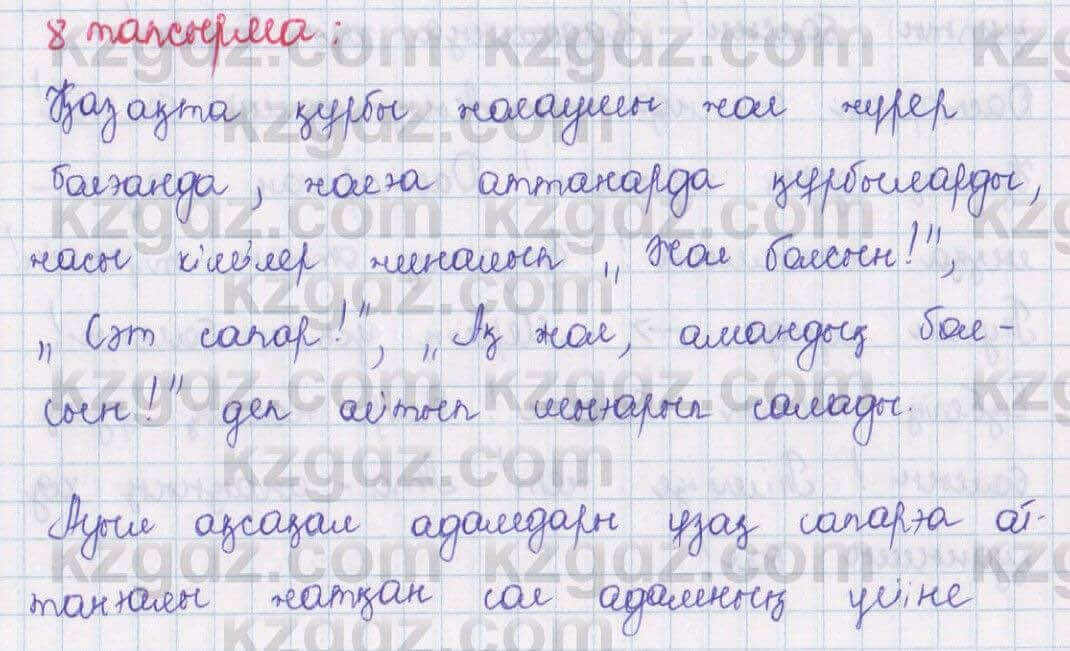 8 тапсырма:
Қазақта құрбы жолаушы жол жүрер
болғанда, жолға аттанарда құрбыларды,
жасы кішілер жиналып „Жол болсын!",
„Сәт сапар!", „Ақ жол, амандық бол-
сын!" деп айтып шығарып салады.
Ауыл ақсақал адамдары ұзақ сапарға ат-
танғалы жатқан сол адамның үйіне
kzgdz.com